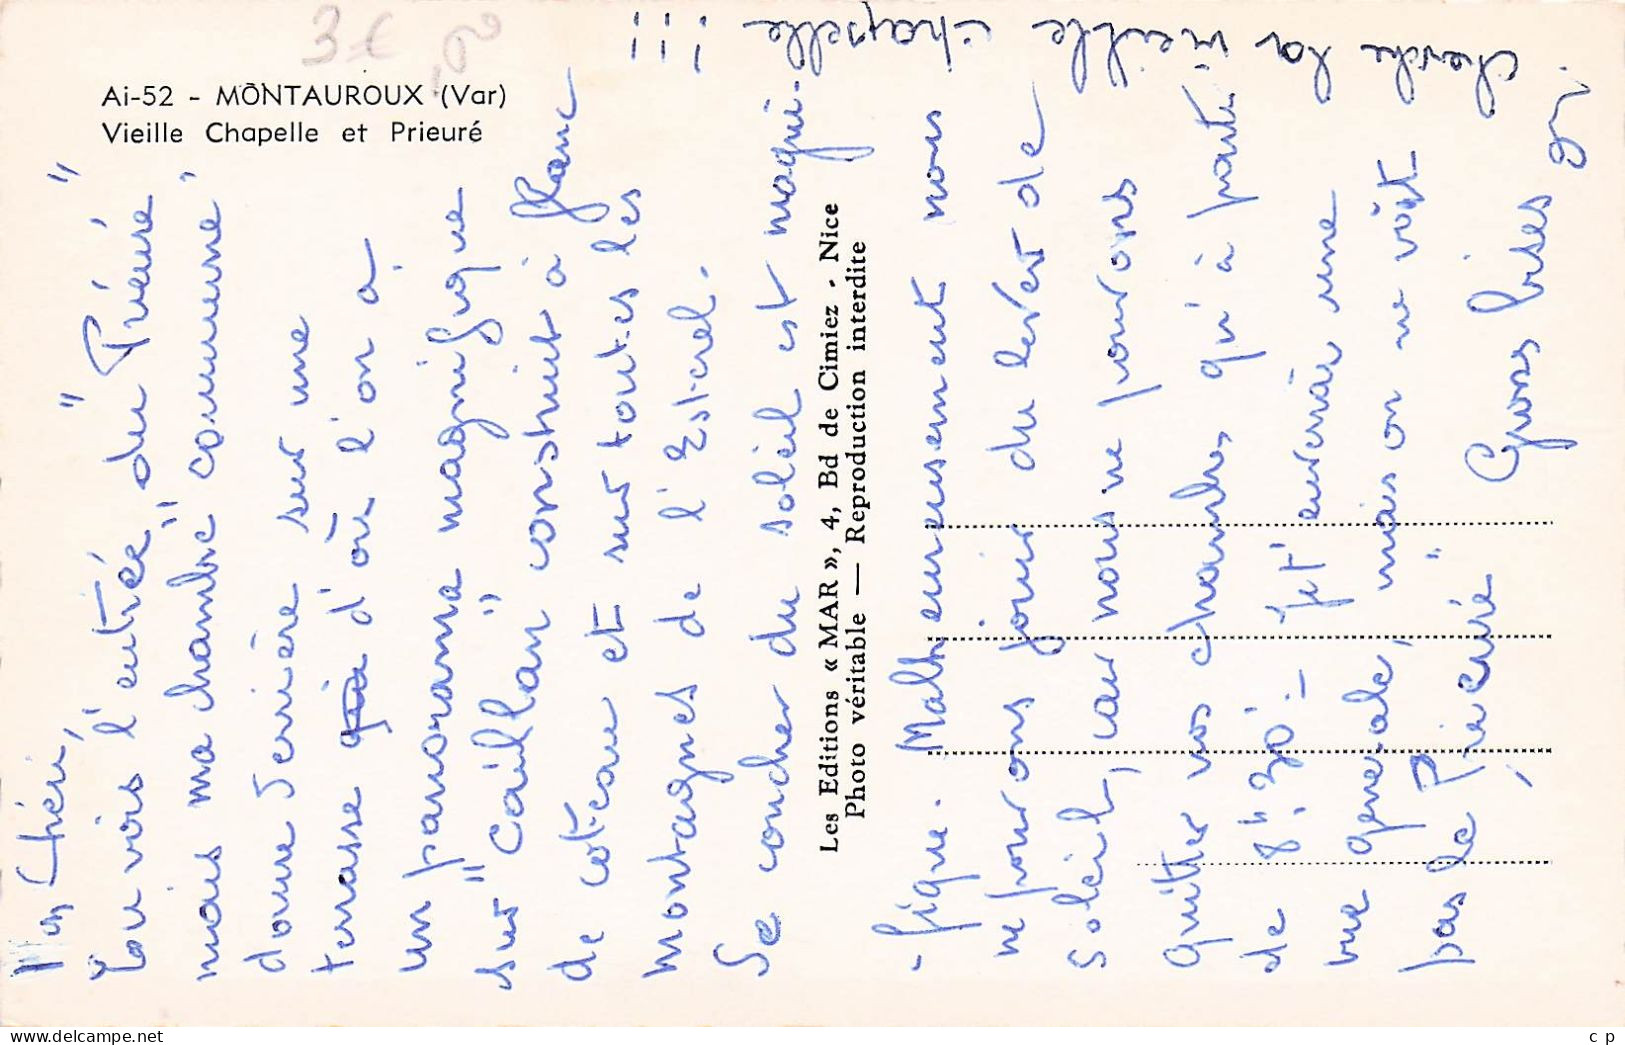 3 €
Ai-52 - MONTAUROUX (Var)
Vieille Chapelle et Prieuré
Les Editions « MAR », 4, Bd de Cimiez - Nice
Photo véritable — Reproduction interdite
Mon Chéri,
Tu vois l'entrée "du Prieuré"
mais ma chambre "commune"
donne derrière sur une
terrasse d'où l'on a
un panorama magnifique
sur "Caillan" construit à flanc
de coteau et sur toutes les
montagnes de l'Esterel.
Se coucher du soleil est magni-
-fique. Malheureusement nous
ne pourons jouir du lever de
soleil, car nous ne pourons
quitter vos chambres qu'à partir
de 8h.30 - Je t'enverrai une
vue générale, mais on ne voit
pas le Prieuré"
Gross bises
cherche la vieille chapelle !!!
c p